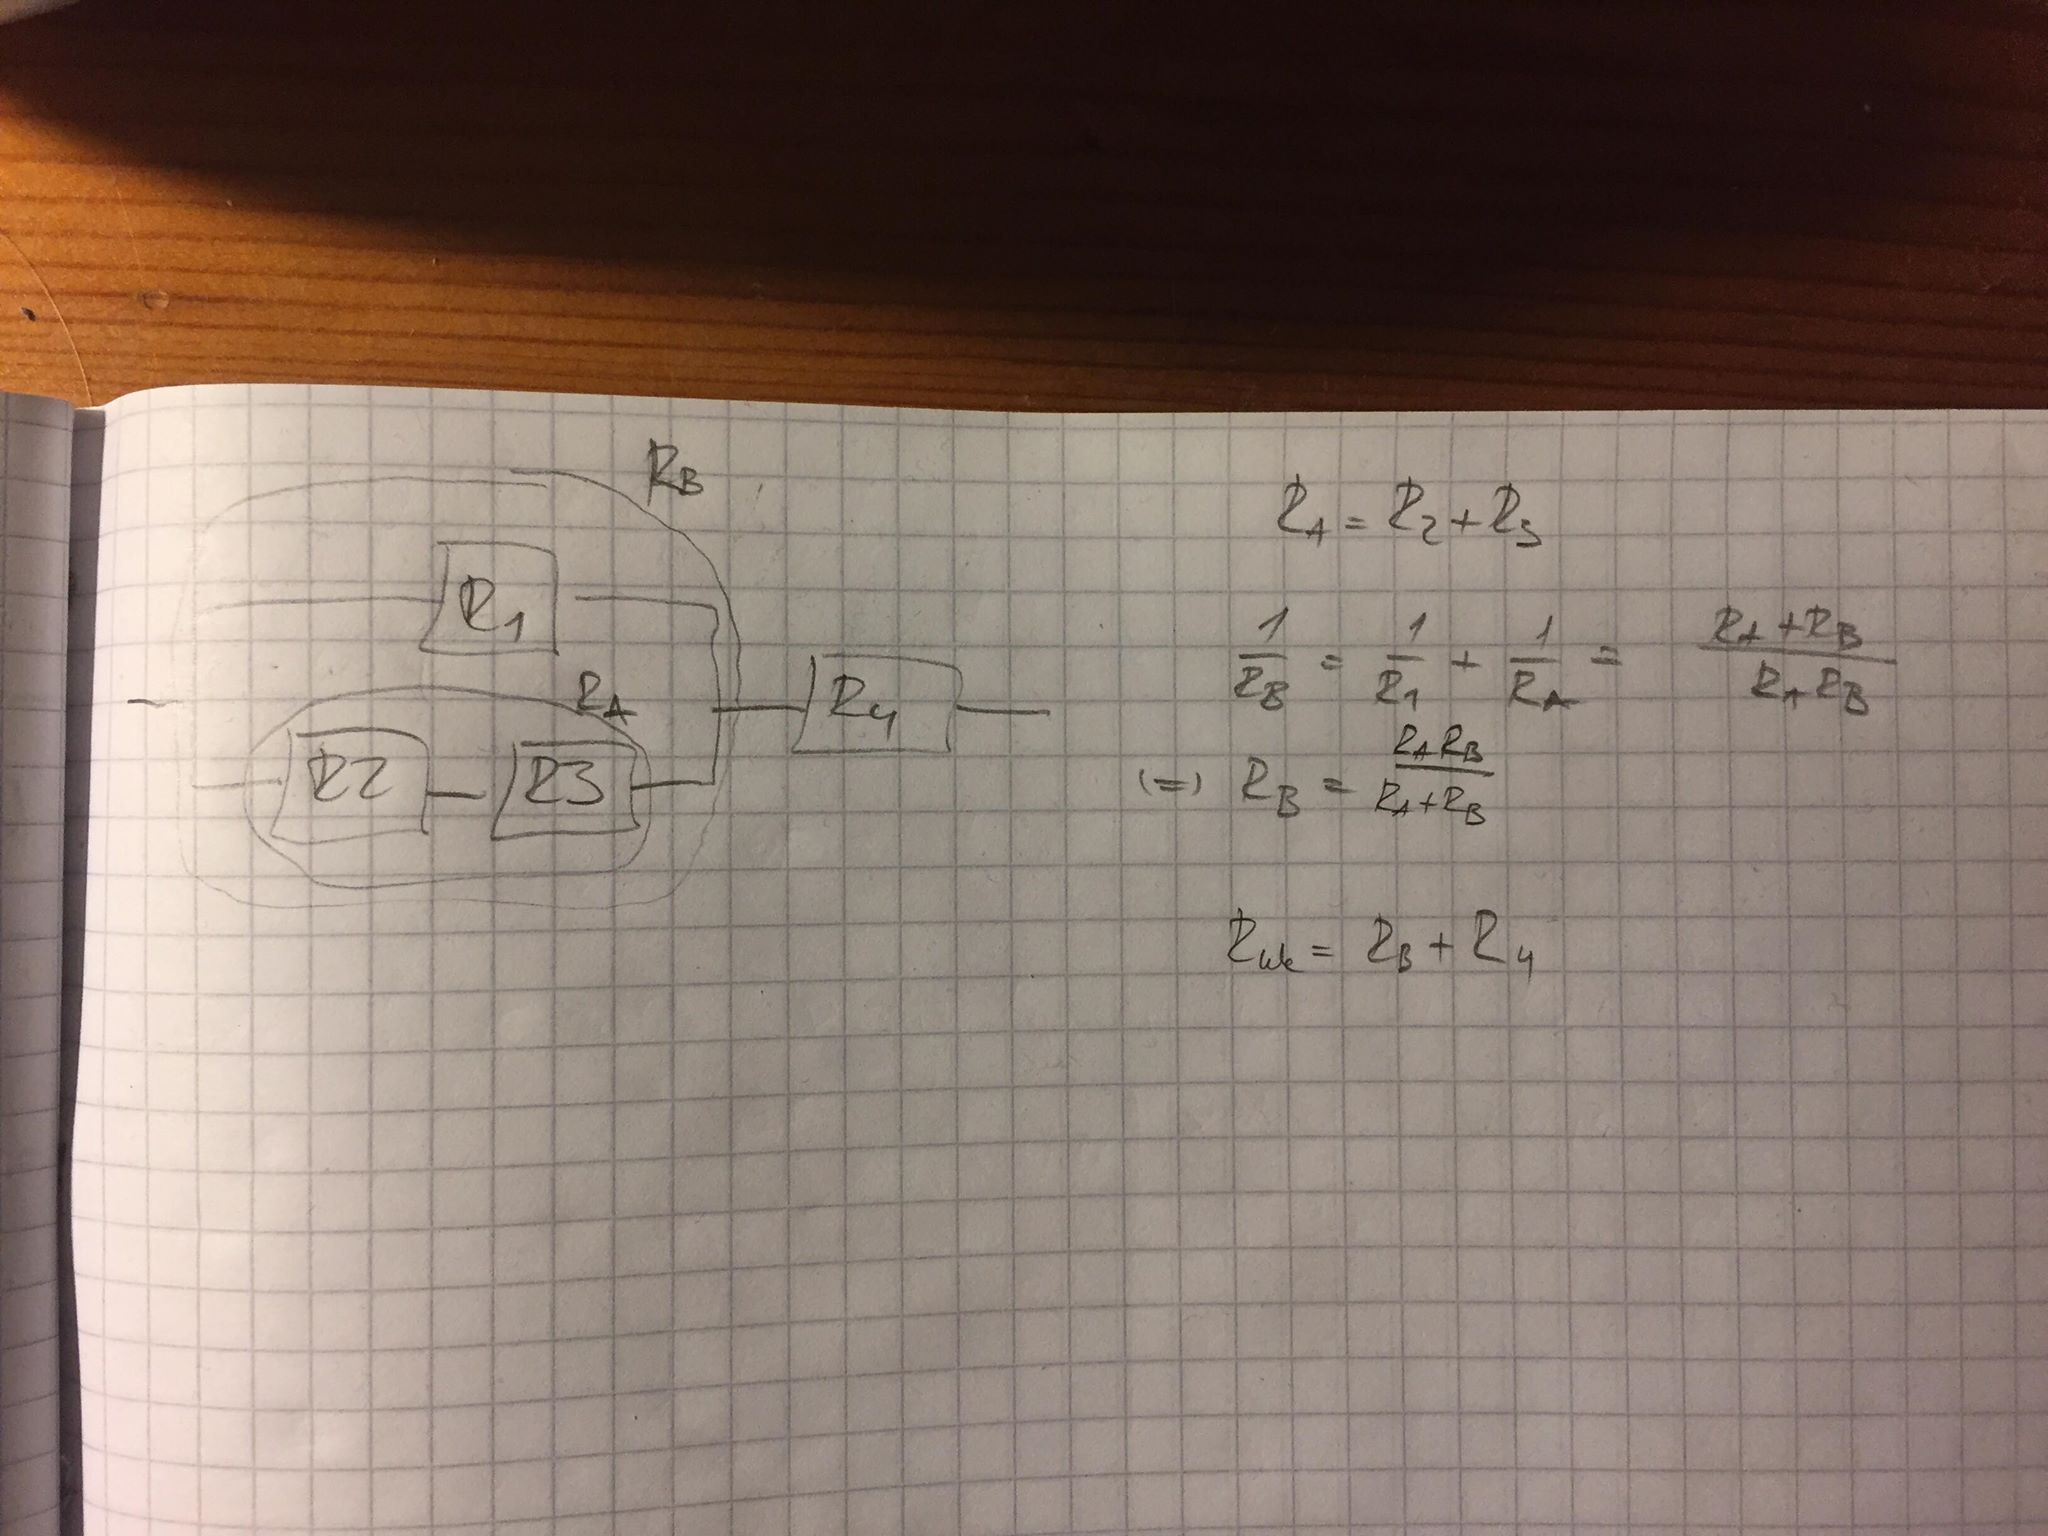 R_B
R1
R_A
R2
R3
R_4
R_A = R_2 + R_3
1/R_B = 1/R_1 + 1/R_A = (R_A + R_B)/(R_A R_B)
(=) R_B = (R_A R_B)/(R_A + R_B)
= R_B + R_4